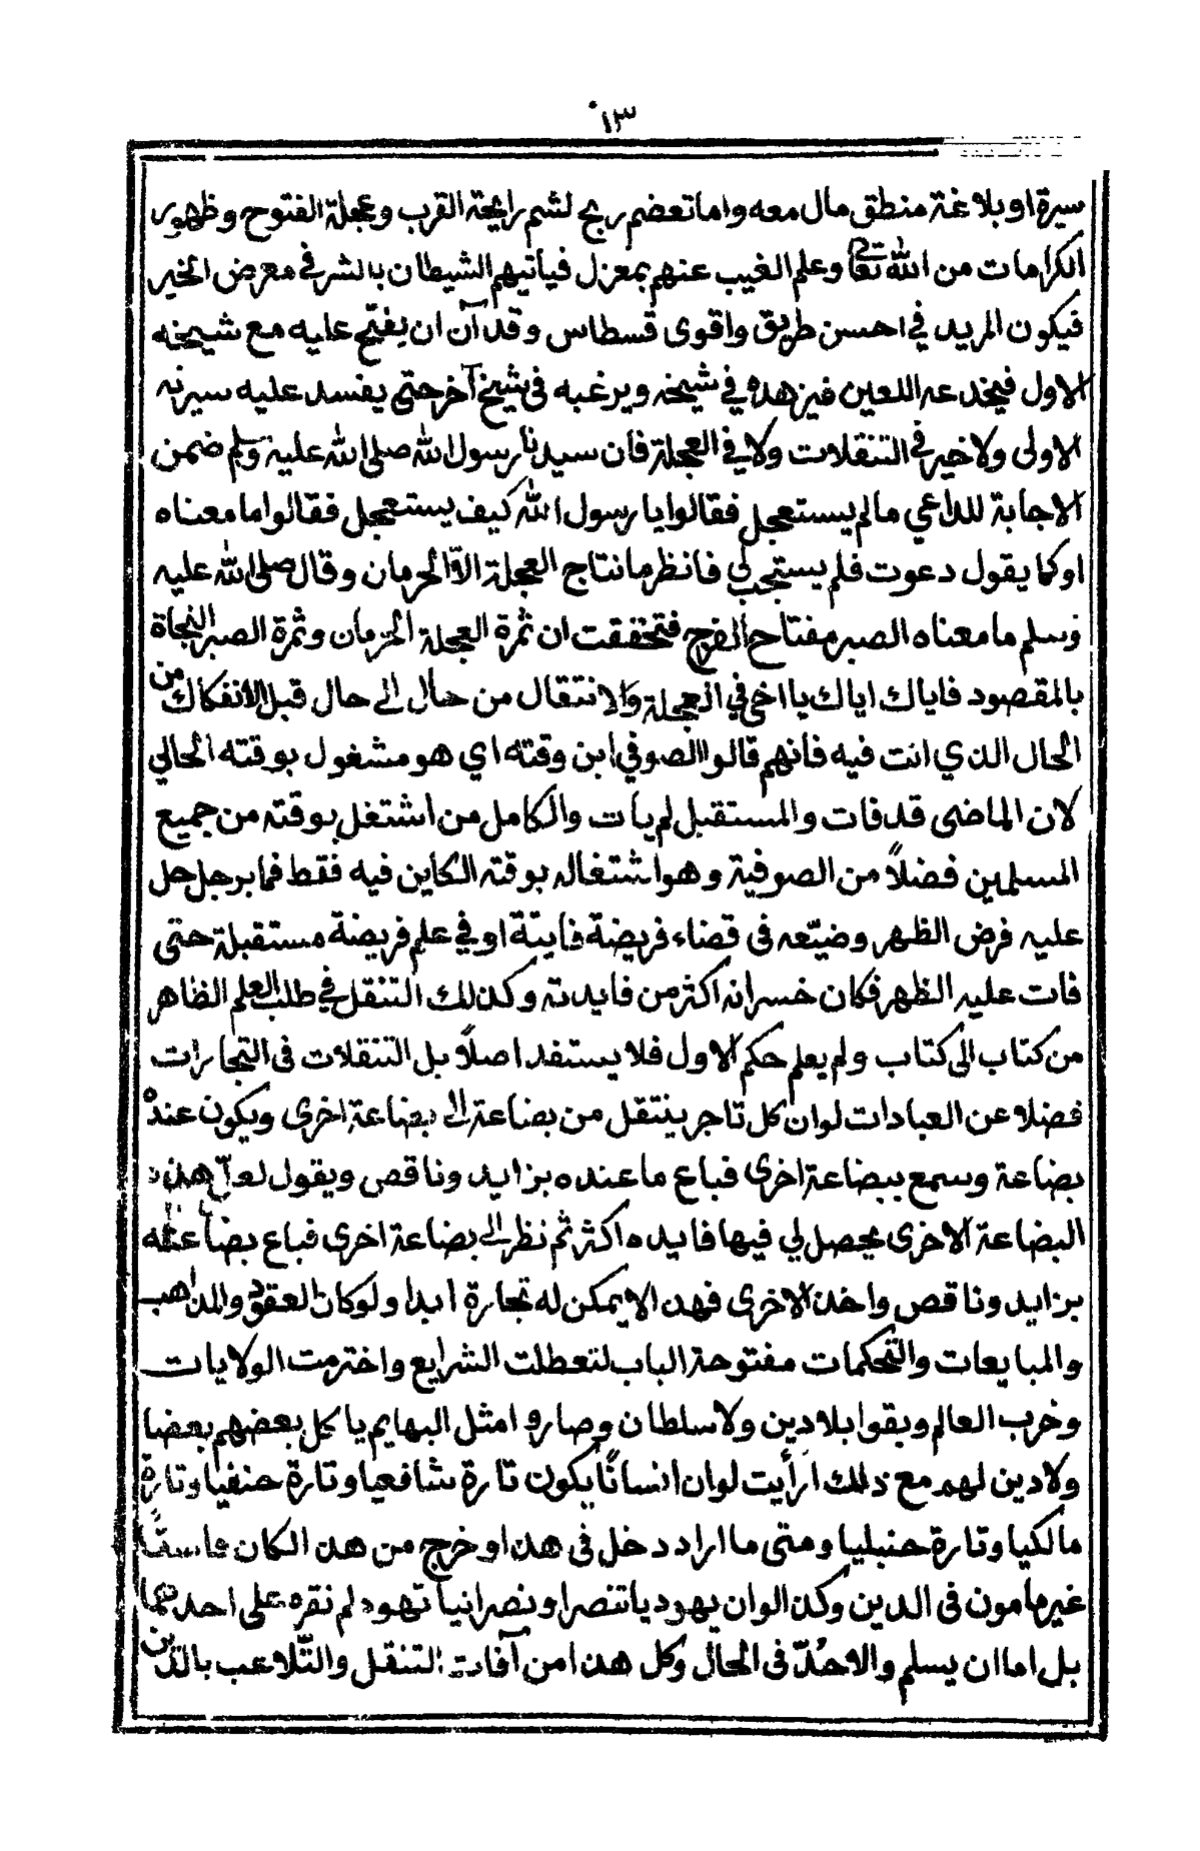 ١٣٠
سيرة او بلاغة منطق مال معه واما تعضهم ريح لشم رايحة القرب وعجلة الفتوح وظهور
الكرامات من الله تعالى وعلم الغيب عنهم بمعزل فيأتيهم الشيطان بالشر في معرض الخير
فيكون المريد في احسن طريق واقوى قسطاس وقد آن ان يفتح عليه مع شيخه
الاول فيخدعه اللعين فيزهده في شيخه ويرغبه في شيخ آخر حتى يفسد عليه سيرته
الاولى ولا خير في التنقلات ولا في العجلة فان سيدنا رسول الله صلى الله عليه وسلم ضمن
الاجابة للداعي مالم يستعجل فقالوا يا رسول الله كيف يستعجل فقالوا ما معناه
او كما يقول دعوت فلم يستجب لي فانظر ما نتاج العجلة الّا الحرمان وقال صلى الله عليه
وسلم ما معناه الصبر مفتاح الفرج فتحققت ان ثمرة العجلة الحرمان وثمرة الصبر النجاة
بالمقصود فاياك اياك يا اخي في العجلة والانتقال من حال الى حال قبل الانفكاك من
الحال الذي انت فيه فانهم قالوا الصوفي ابن وقته اي هو مشغول بوقته الحالي
لان الماضى قد فات والمستقبل لم يات والكامل من اشتغل بوقته من جميع
المسلمين فضلاً من الصوفية وهو اشتغاله بوقته الكاين فيه فقط فما برجل حل
عليه فرض الظهر وضيّعه فى قضاء فريضة فايتة او في علم فريضة مستقبلة حتى
فات عليه الظهر فكان خسرانه اكثر من فايدته وكذلك التنقل في طلب العلم الظاهر
من كتاب الى كتاب ولم يعلم حكم الاول فلا يستفد اصلاً بل التنقلات فى التجارات
فضلا عن العبادات لوان كل تاجر ينتقل من بضاعة الى بضاعة اخرى ويكون عنده
بضاعة وسمع ببضاعة اخرى فباع ما عنده بزايد وناقص ويقول لعلّ هذه
البضاعة الاخرى يحصل لي فيها فايده اكثر ثم نظر الى بضاعة اخرى فباع بضاعته
بزايد وناقص واخذ الاخرى فهذا لا يمكن له تجارة ابدا ولو كان العقود والمذاهب
والمبايعات والتحكمات مفتوحة الباب لتعطلت الشرايع واخترمت الولايات
وخرب العالم وبقوا بلا دين ولا سلطان وصاروا مثل البهايم ياكل بعضهم بعضا
ولا دين لهم مع ذلك ارأيت لوان انسانًا يكون تارة شافعيا وتارة حنفيا وتارة
مالكيا وتارة حنبليا ومتى ما اراد دخل فى هذا وخرج من هذا لكان فاسقًا
غير مامون فى الدين وكذا لوان يهوديا تنصر او نصرانيا تهود لم نقره على احدهما
بل اما ان يسلم والا حُدّ فى الحال وكل هذا من آفات التنقل والتّلاعب بالدّين